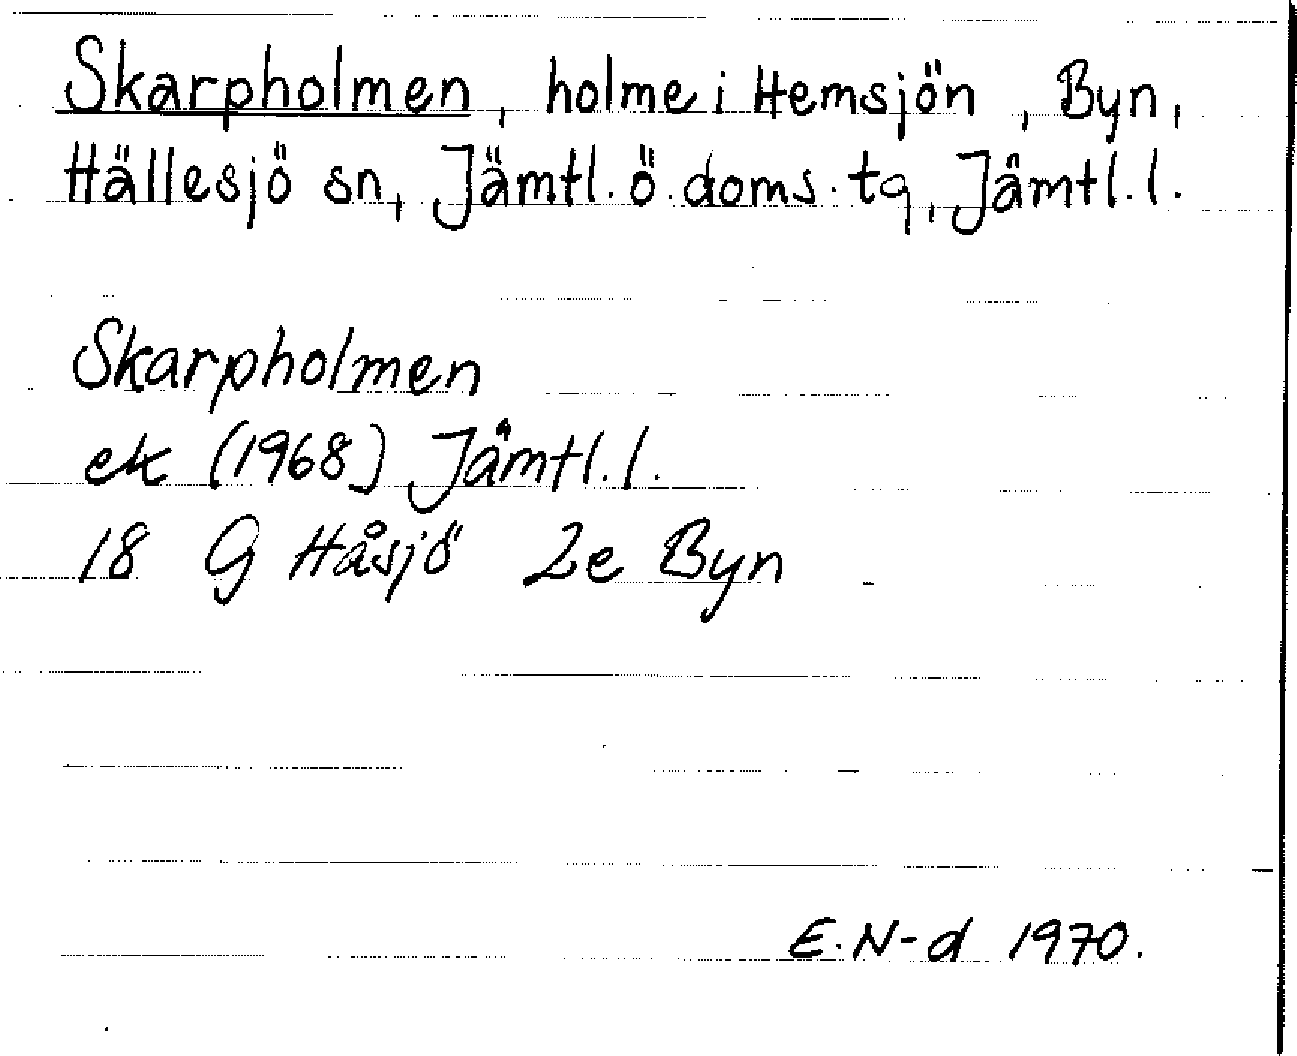 Skarpholmen, holme i Hemsjön, Byn,
Hällesjö sn, Jämtl. ö. doms. tg, Jämtl. l.
Skarpholmen
ek (1968) Jämtl. l.
18 G Håsjö 2e Byn
E. N-d 1970.